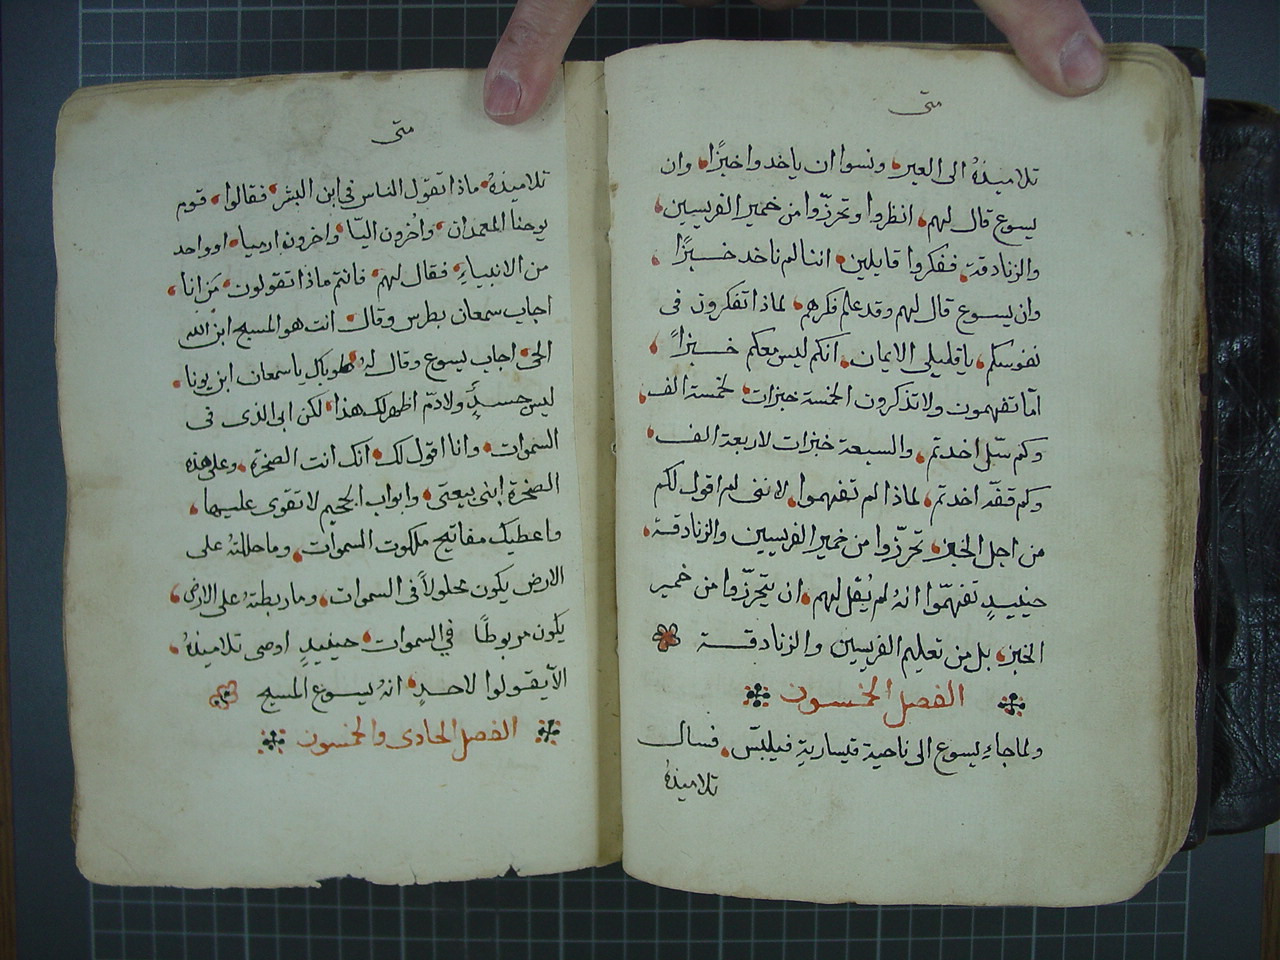 متى
تلاميذهُ الى العبر، ونسوا ان ياخدوا خبزًا، وان
يسوع قال لهم، انظروا وتحرزّوا من خمير الفريسيين،
والزنادقة، ففكروا قايلين، اننا لم ناخد خبزًا،
وان يسوع قال لهم وقد علم فكرهم، لماذا تفكرون في
نفوسكم، ياقليلى الايمان، انكم ليس معكم خبزاً،
اما تفهمون ولا تذكرون الخمسة خبزات، لخمسة الف،
وكم سّل اخدتم، والسبعة خبزات لاربعة الف،
وكم قفّة اخدتم، لماذا لم تفهموا، لاننى لم اقول لكم
من اجل الخبز، تحرزّوا من خمير الفريسيين والزنادقة،
حينيدٍ تفهمّوا انهُ لم يُقل لهم، ان يتحرزّوا من خمير
الخبز، بل من تعليم الفريسين والزنادقة
الفصل الخمسون
ولما جاء يسوع الى ناحية قيسارية فيلبّس، فسال
تلاميذهُ
متى
تلاميذهُ، ماذا تقول الناس في ابن البشر، فقالوا، قوم
يوحنا المعمدان، واخرون اليّا، واخرون ارميا، او واحد
من الانبياء، فقال لهم، فانتم ماذا تقولون، مَن انا،
اجاب سمعان بطرس وقال، انت هو المسيح ابن الله
الحى، اجاب يسوع وقال لهُ، طوباك ياسمعان ابن يونا،
ليس جسدٍ ولا دم اظهر لك هذا، لكن ابى الذى فى
السموات، وانا اقول لك، انك انت الصخرة، وعلى هذه
الصخرة ابنى بيعتى، وابواب الجحيم لا تقوى عليها،
واعطيك مفاتيح ملكوت السموات، وما حللتهُ على
الارض يكون محلولاً فى السموات، وما ربطتهُ على الارض،
يكون مربوطًا في السموات، حينيدٍ اوصى تلاميذهُ،
الاّ يقولوا لاحدٍ، انهُ يسوع المسيح
الفصل الحادى والخمسون